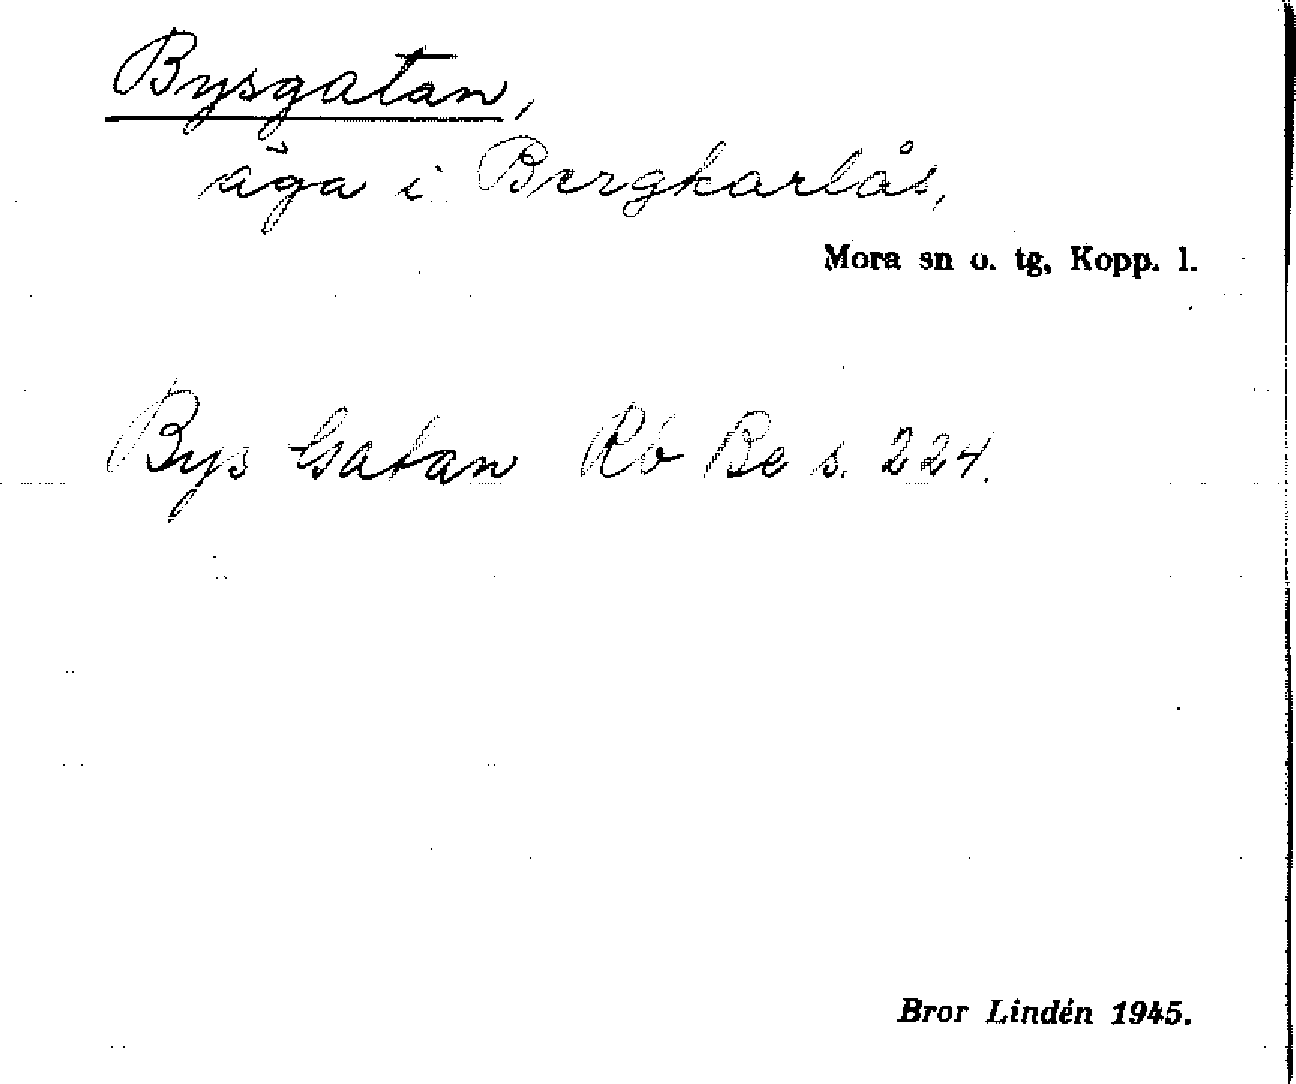 Bysgatan,
äga i Bergkarlås,
Mora sn o. tg, Kopp. l.
Bys Gatan Rb Be s. 224.
Bror Lindén 1945.